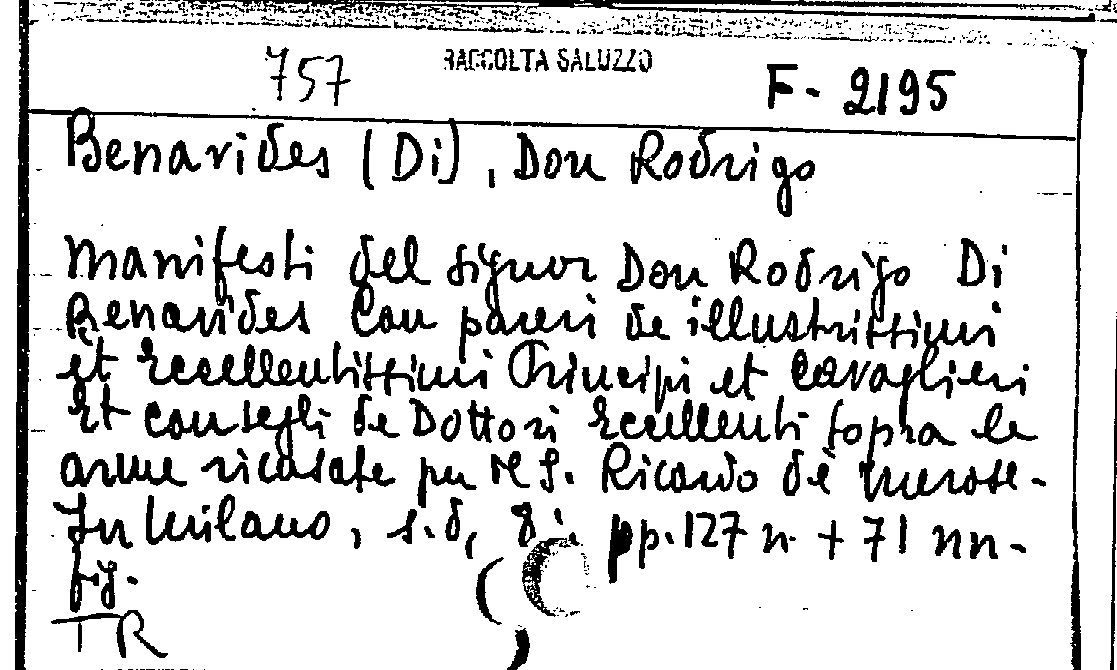 757
RACCOLTA SALUZZO
F- 2195
Benavides (Di), Don Rodrigo
Manifesti del signor Don Rodrigo Di
Benavides Con pareri de illustrissimi
et Eccellentissimi Principi et Cavaglieri
Et Consegli de Dottori Eccellenti sopra le
arme ricusate per M S. Ricardo dè Merose-
In Milano, s.d, 8°: pp. 127 n. + 71 nn-
fig.
TR